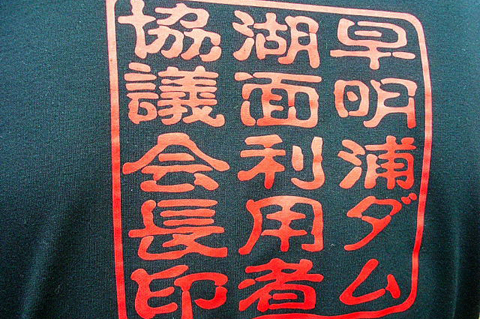 早明浦ダム
湖面利用者
協議会長印